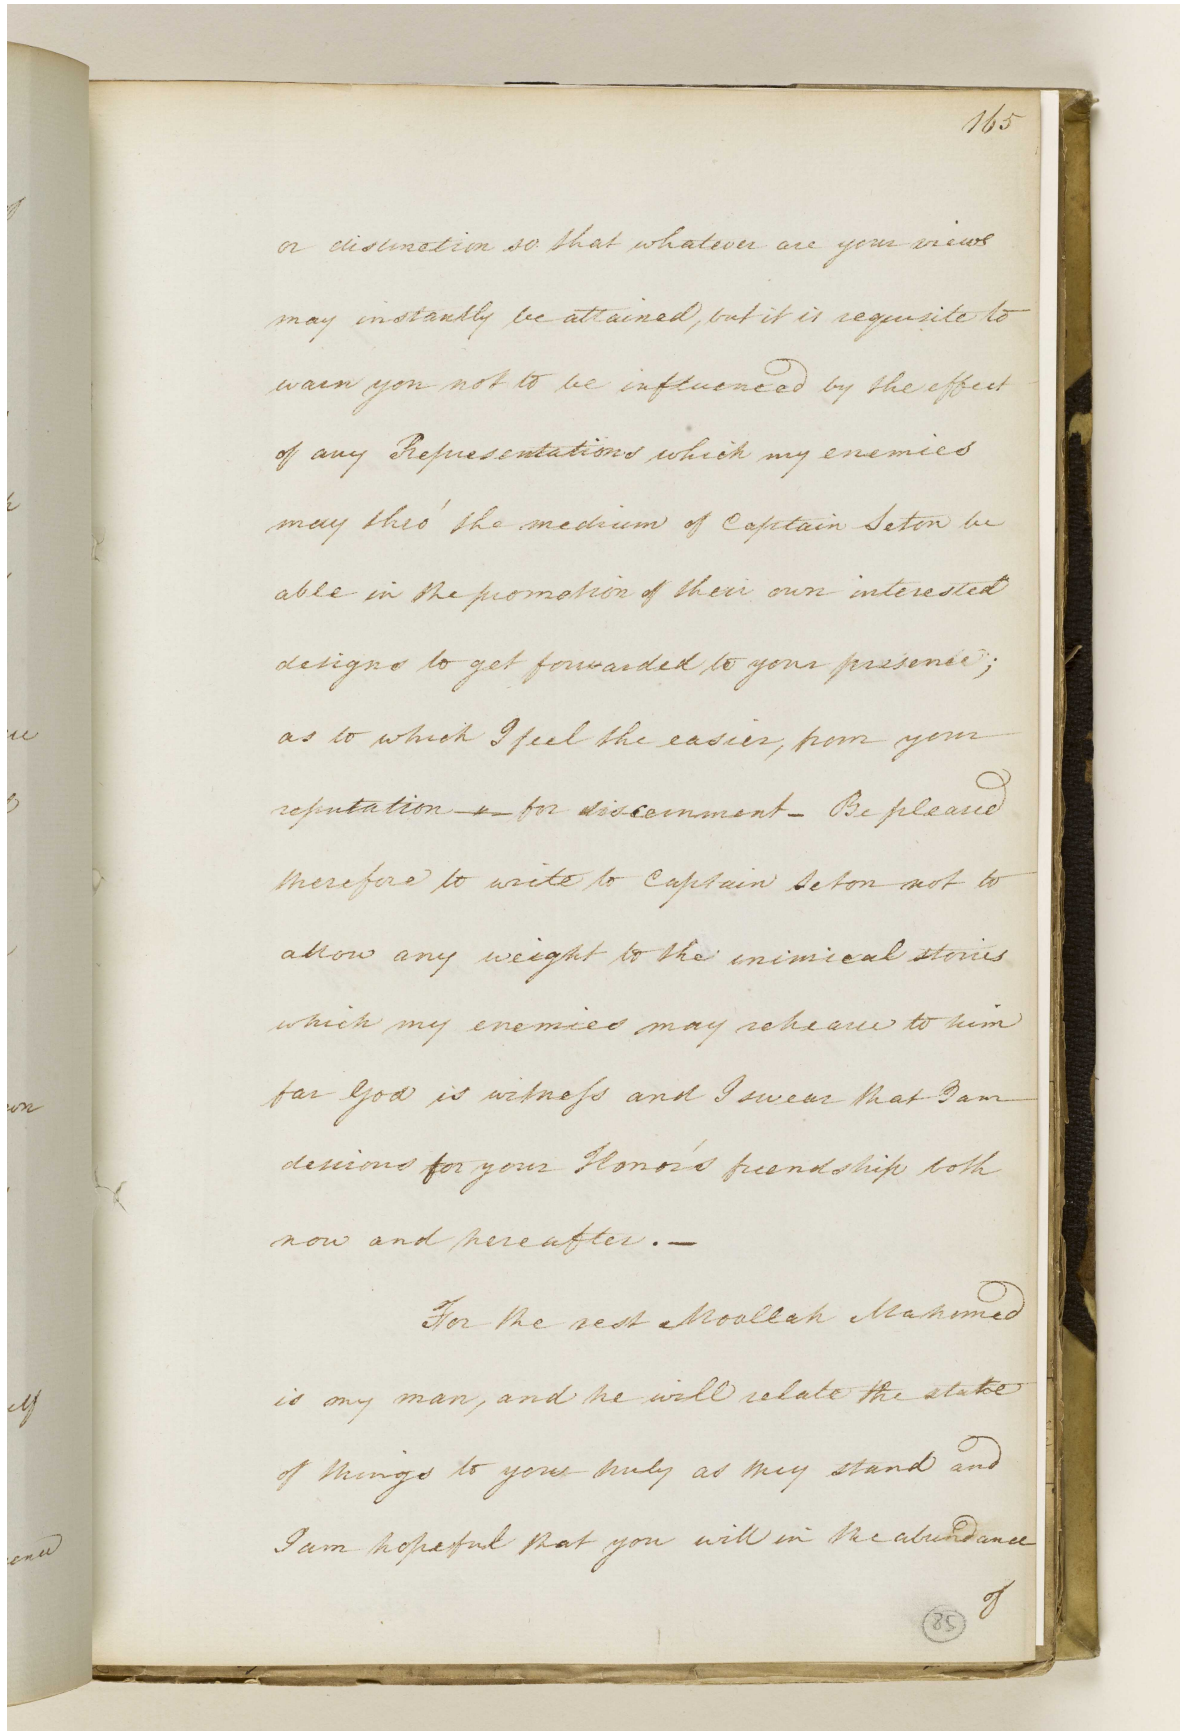 165
or distinction so that whatever are your views
may instantly be attained, but it is requisite to
warn you not to be influenced by the effect
of any Representations which my enemies
may thro' the medium of Captain Seton be
able in the promotion of their own interested
designs to get forwarded to your presence;
as to which I feel the easier, from your
reputation — for discernment - Be pleased
therefore to write to Captain Seton not to
allow any weight to the inimical stories
which my enemies may rehearse to him
for God is witness and I swear that I am
desirous for your Honor's friendship both
now and hereafter. —
For the rest Moollah Mahomed
is my man, and he will relate the state
of things to you truly as they stand and
I am hopeful that you will in the abundance
of
85